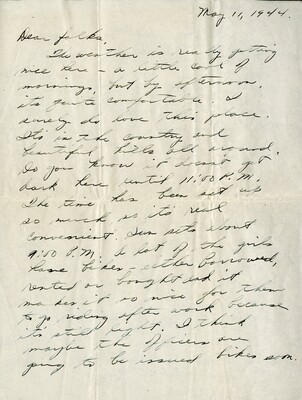 May 11, 1944.
Dear folks,
The weather is really getting
nice here - a little cool of
mornings, but by afternoon,
it's quite comfortable. I
surely do love this place.
It's in the country and
beautiful hills all around.
Do you know it doesn't get
dark here until 11:00 P.M.
The time has been set up
so much so it's real
convenient. Sun sets about
9:00 P.M. A lot of the girls
have bikes - either borrowed,
rented or bought and it
makes it so nice for them
to go riding after work because
it's still light. I think
maybe the officers are
going to be issued bikes soon.